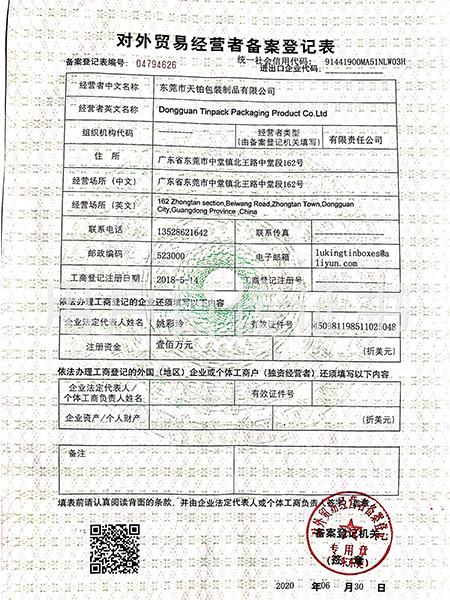 对外贸易经营者备案登记表
备案登记表编号: 04794626
统一社会信用代码: 91441900MA51NLW03H
进出口企业代码: -------------
经营者中文名称 东莞市天铂包装制品有限公司
经营者英文名称 Dongguan Tinpack Packaging Product Co.Ltd
组织机构代码 --------- 经营者类型
(由备案登记机关填写) 有限责任公司
住 所 广东省东莞市中堂镇北王路中堂段162号
经营场所（中文） 广东省东莞市中堂镇北王路中堂段162号
经营场所（英文） 162 Zhongtan section,Beiwang Road,Zhongtan Town,Dongguan
City,Guangdong Province ,China
联系电话 13528621642 联系传真 -------------
邮政编码 523000 电子邮箱 lukingtinboxes@a
liyun.com
工商登记注册日期 2018-5-14 工商登记注册号 -------------
依法办理工商登记的企业还须填写以下内容
企业法定代表人姓名 姚彩玲 有效证件号 450981198511025048
注册资金 壹佰万元 (折美元)
依法办理工商登记的外国（地区）企业或个体工商户（独资经营者）还须填写以下内容
企业法定代表人/
个体工商负责人姓名 有效证件号
企业资产/个人财产 (折美元)
备注
填表前请认真阅读背面的条款，并由企业法定代表人或个体工商负责人签字、盖章。
对外贸易经营者备案登记
备案登记机关
专用章
(签 章)
广东东莞
2020 年 06 月 30 日